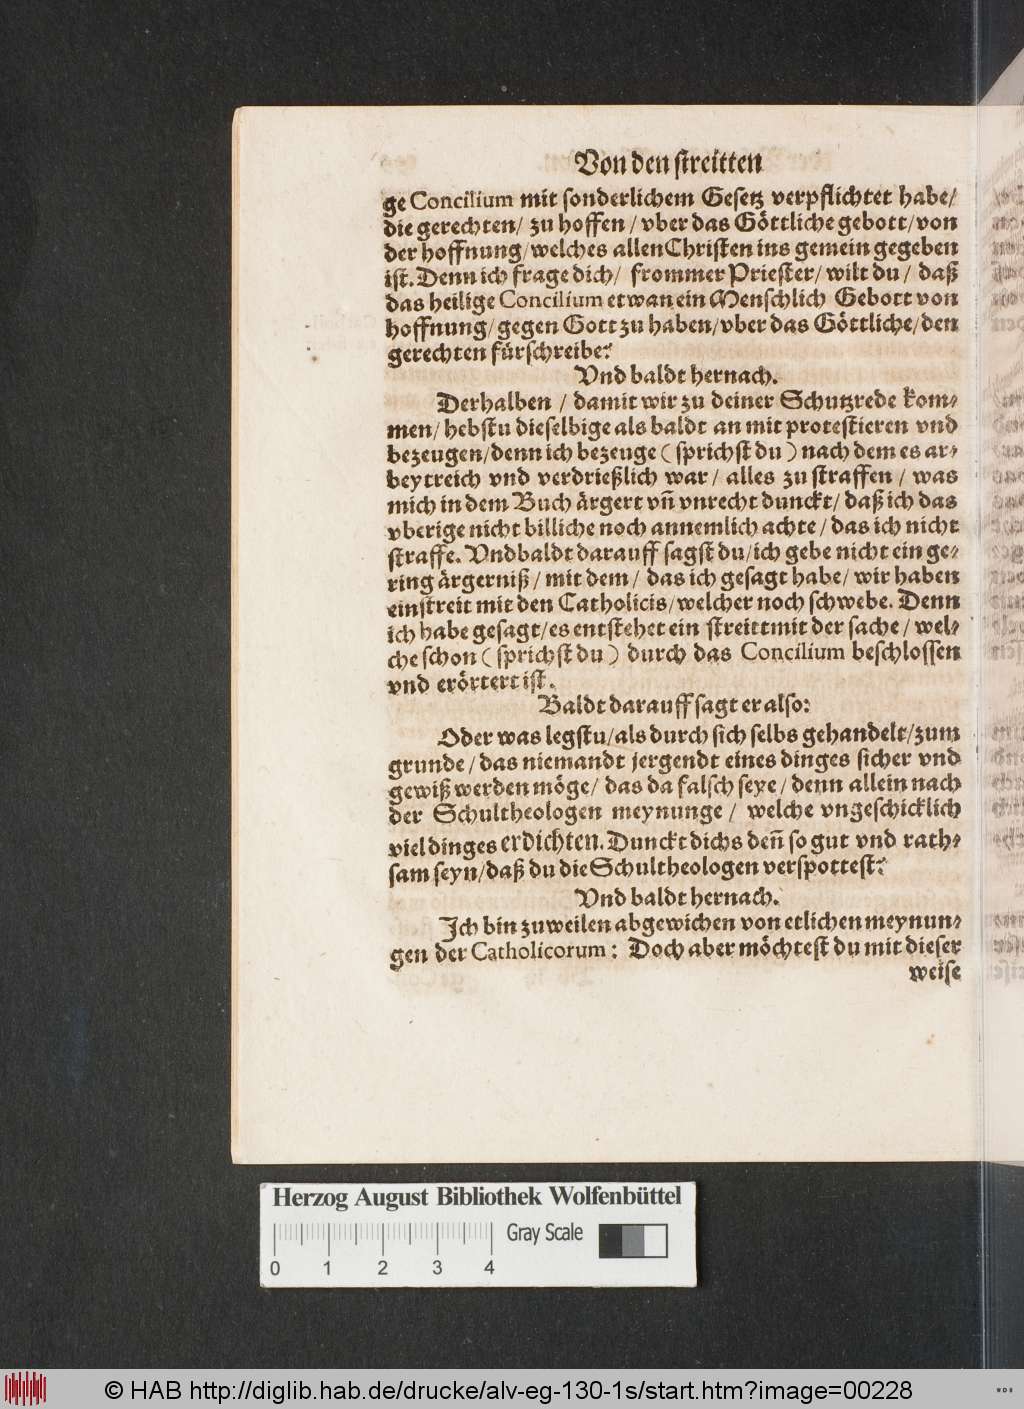 Von den streitten
ge Concilium mit sonderlichem Gesetz verpflichtet habe/
die gerechten/ zu hoffen / vber das Göttliche gebott/ von
der hoffnung/ welches allen Christen ins gemein gegeben
ist. Denn ich frage dich/ frommer Priester/ wilt du / daß
das heilige Concilium etwan ein Menschlich Gebott von
hoffnung/ gegen Gott zu haben/ vber das Göttliche/ den
gerechten fürschreibe?
Vnd baldt hernach.
Derhalben / damit wir zu deiner Schutzrede kom-
men/ hebstu dieselbige als baldt an mit protestieren vnd
bezeugen/ denn ich bezeuge ( sprichst du ) nach dem es ar-
beytreich vnd verdrießlich war / alles zu straffen / was
mich in dem Buch ärgert vñ vnrecht dunckt/ daß ich das
vberige nicht billiche noch annemlich achte / das ich nicht
straffe. Vnd baldt darauff sagst du/ ich gebe nicht ein ge-
ring ärgerniß / mit dem / das ich gesagt habe/ wir haben
ein streit mit den Catholicis/ welcher noch schwebe. Denn
ich habe gesagt/ es entstehet ein streitt mit der sache / wel-
che schon ( sprichst du ) durch das Concilium beschlossen
vnd erörtert ist.
Baldt darauff sagt er also:
Oder was legstu/ als durch sich selbs gehandelt/ zum
grunde / das niemandt jergendt eines dinges sicher vnd
gewiß werden möge/ das da falsch seye / denn allein nach
der Schultheologen meynunge / welche vngeschicklich
viel dinges erdichten. Dunckt dichs deñ so gut vnd rath-
sam seyn/ daß du die Schultheologen verspottest?
Vnd baldt hernach.
Ich bin zuweilen abgewichen von etlichen meynun-
gen der Catholicorum : Doch aber möchtest du mit dieser
weise
Herzog August Bibliothek Wolfenbüttel
Gray Scale
0 1 2 3 4
© HAB http://diglib.hab.de/drucke/alv-eg-130-1s/start.htm?image=00228